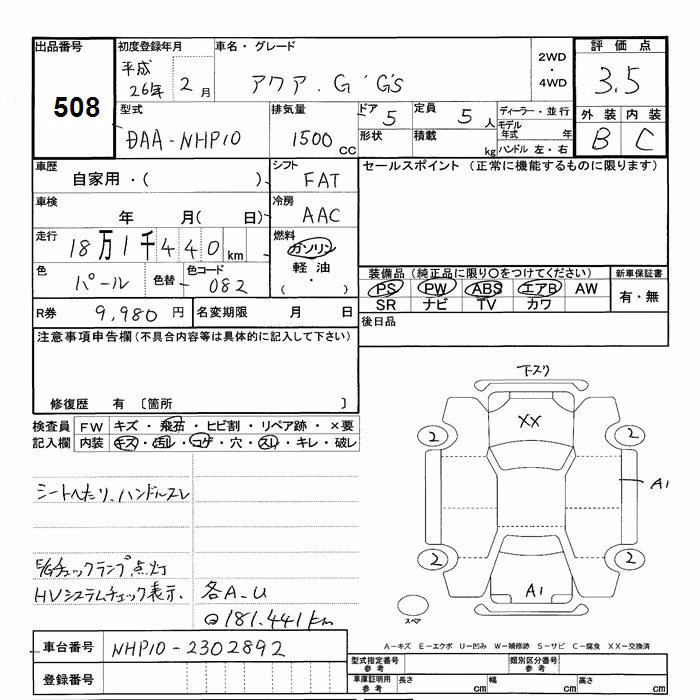 出品番号
508
初度登録年月
平成
26年 2月
車名・グレード
アクア. G G's
2WD
・
4WD
評価点
3.5
外装 内装
B C
型式
DAA-NHP10
排気量
1500 CC
ドア
5
定員
5人
形状
積載
kg
ディーラー・並行
モデル
年式 年
ハンドル 左・右
車歴
自家用・( )
シフト
FAT
車検
年 月( 日)
冷房
AAC
走行
18万1千440km
燃料
ガソリン
軽油
( ・ )
色
パール
色替
色コード
082
セールスポイント (正常に機能するものに限ります)
装備品 (純正品に限り○をつけてください)
PS PW ABS エアB AW
SR ナビ TV カワ
新車保証書
有・無
後日品
R券
9,980円
名変期限 月 日
注意事項申告欄 (不具合内容等は具体的に記入して下さい)
修復歴 有 〔箇所 〕
検査員
記入欄
FW キズ・飛石・ヒビ割・リペア跡・×要
内装 キズ・汚レ・コゲ・穴・スレ・キレ・破レ
シートへたり、ハンドルスレ
E/Gチェックランプ点灯
HVシステムチェック表示、
各A-U
181.441km
下スリ
XX
2
2
A1
2
2
A1
スペア
A-キズ E-エクボ U-凹み W-補修跡 S-サビ C-腐食 XX-交換済
車台番号
NHP10-2302892
登録番号
型式指定番号
参考
類別区分番号
参考
車庫証明用
参考
長さ cm
幅 cm
高さ cm